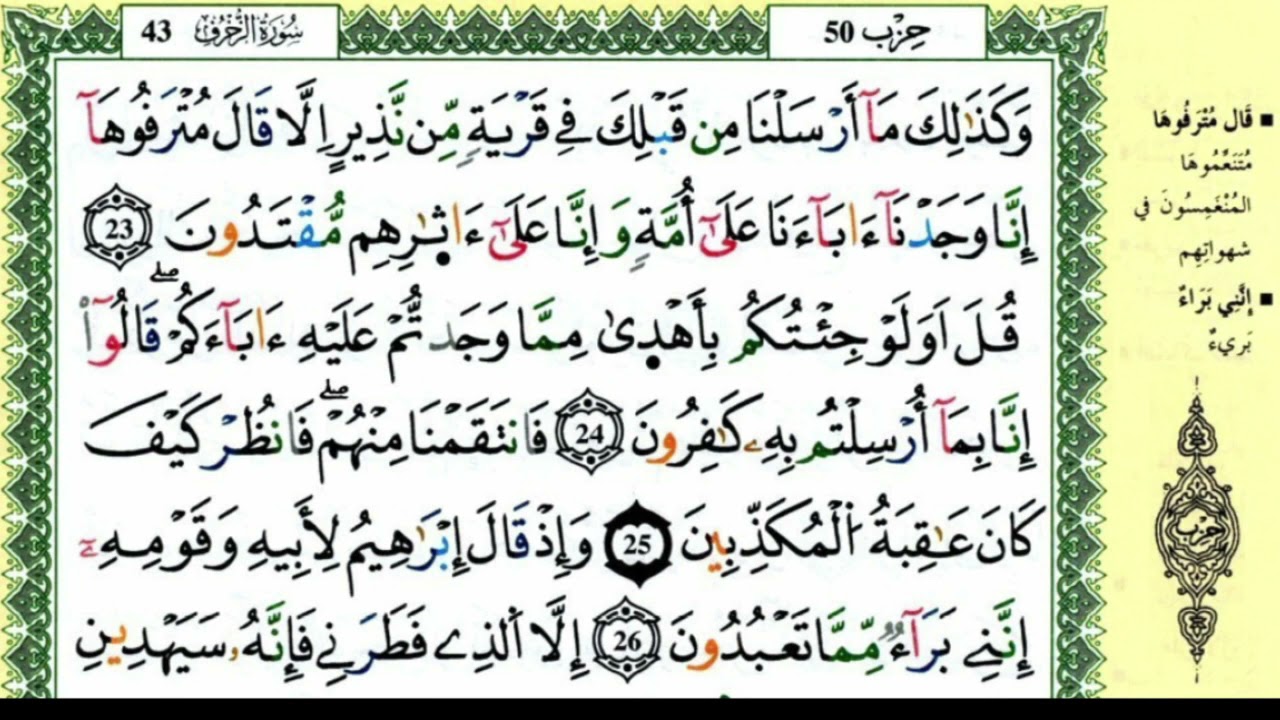 سُورَةُ الزُّخْرُفِ 43
حِزْب 50
وَكَذَٰلِكَ مَآ أَرْسَلْنَا مِن قَبْلِكَ فِے قَرْيَةٍ مِّن نَّذِيرٍ اِلَّا قَالَ مُتْرَفُوهَآ
إِنَّا وَجَدْنَآ ءَابَآءَنَا عَلَىٰٓ أُمَّةٍ وَإِنَّا عَلَىٰٓ ءَاثٰ۪رِهِم مُّقْتَدُونَ 23
قُلَ اَوَلَوْ جِئْتُكُم بِأَهْد۪ىٰ مِمَّا وَجَدتُّمْ عَلَيْهِ ءَابَآءَكُمْۖ قَالُوٓاْ
إِنَّا بِمَآ أُرْسِلْتُم بِهِۦ كَٰفِرُونَ 24 فَانتَقَمْنَا مِنْهُمْۖ فَانظُرْ كَيْفَ
كَانَ عَٰقِبَةُ اُ۬لْمُكَذِّبِينَ 25 وَإِذْ قَالَ إِبْرَٰهِيمُ لِأَبِيهِ وَقَوْمِهِۦٓ
إِنَّنِے بَرَآءٌ مِّمَّا تَعْبُدُونَ 26 إِلَّا اَ۬لذِے فَطَرَنِے فَإِنَّهُۥ سَيَهْدِينِ
قَالَ مُتْرَفُوهَا
مُتَنَعِّمُوهَا
المُنْغَمِسُونَ فِي
شهواتِهِم
إِنَّنِي بَرَاءٌ
بَرِيءٌ
حِزْب